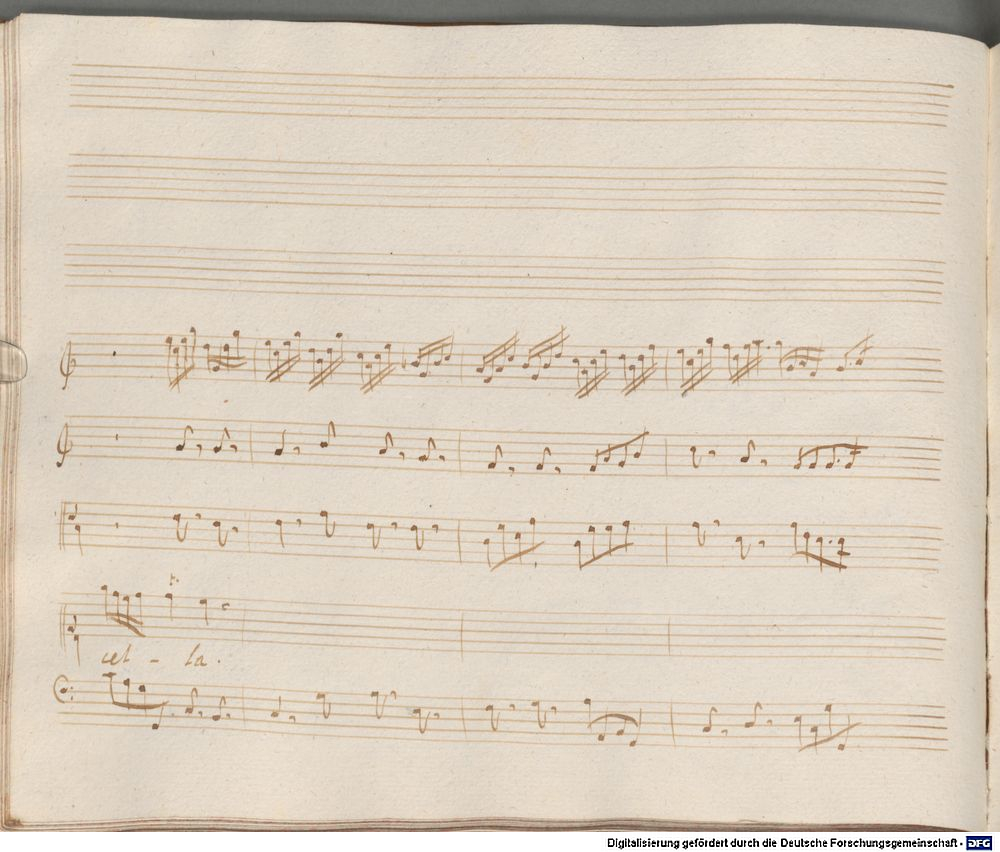 cel - la.
Digitalisierung gefördert durch die Deutsche Forschungsgemeinschaft - DFG